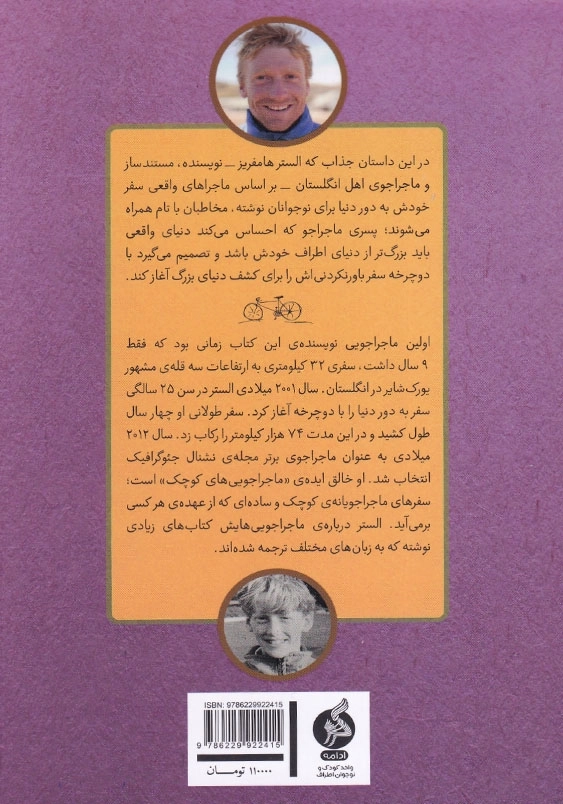 در این داستان جذاب که الستر هامفریز ــ نویسنده، مستندساز
و ماجراجوی اهل انگلستان ــ بر اساس ماجراهای واقعی سفر
خودش به دور دنیا برای نوجوانان نوشته، مخاطبان با تام همراه
می‌شوند؛ پسری ماجراجو که احساس می‌کند دنیای واقعی
باید بزرگ‌تر از دنیای اطراف خودش باشد و تصمیم می‌گیرد با
دوچرخه سفر باورنکردنی‌اش را برای کشف دنیای بزرگ آغاز کند.
اولین ماجراجویی نویسنده‌ی این کتاب زمانی بود که فقط
۹ سال داشت، سفری ۳۲ کیلومتری به ارتفاعات سه قله‌ی مشهور
یورک‌شایر در انگلستان. سال ۲۰۰۱ میلادی الستر در سن ۲۵ سالگی
سفر به دور دنیا را با دوچرخه آغاز کرد. سفر طولانی او چهار سال
طول کشید و در این مدت ۷۴ هزار کیلومتر را رکاب زد. سال ۲۰۱۲
میلادی به عنوان ماجراجوی برتر مجله‌ی نشنال جئوگرافیک
انتخاب شد. او خالق ایده‌ی «ماجراجویی‌های کوچک» است؛
سفرهای ماجراجویانه‌ی کوچک و ساده‌ای که از عهده‌ی هر کسی
برمی‌آید. الستر درباره‌ی ماجراجویی‌هایش کتاب‌های زیادی
نوشته که به زبان‌های مختلف ترجمه شده‌اند.
ISBN: 9786229922415
9 786229 922415
۱۱۰۰۰۰ تومــان
ادامه
واحد کودک و
نوجوان اطراف